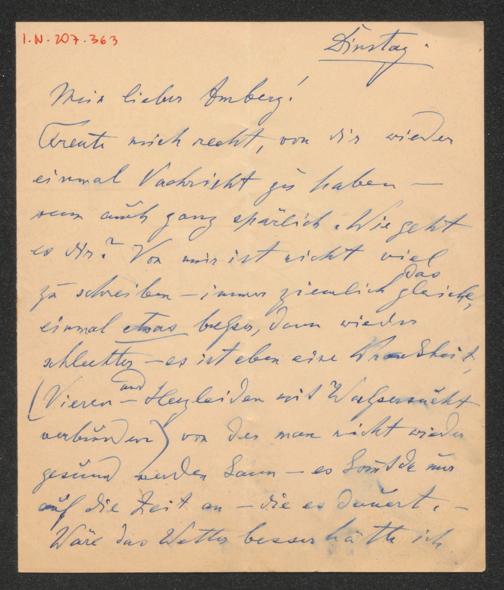 I.N. 207.363
Dinstag.
Mein lieber Amberg!
Freute mich recht, von dir wieder
einmal Nachricht zu haben —
wenn auch ganz spärlich. Wie geht
es dir? Von mir ist nicht viel
das
zu schreiben — immer ziemlich gleiche,
einmal etwas beßer, dann wieder
schlechter — es ist eben eine Krankheit,
und
(Nieren — Herzleiden mit Waßersucht
verbunden) von der man nicht wieder
gesund werden kann — es kommt nur
auf die Zeit an — die es dauert. —
Wäre das Wetter besser hätte ich